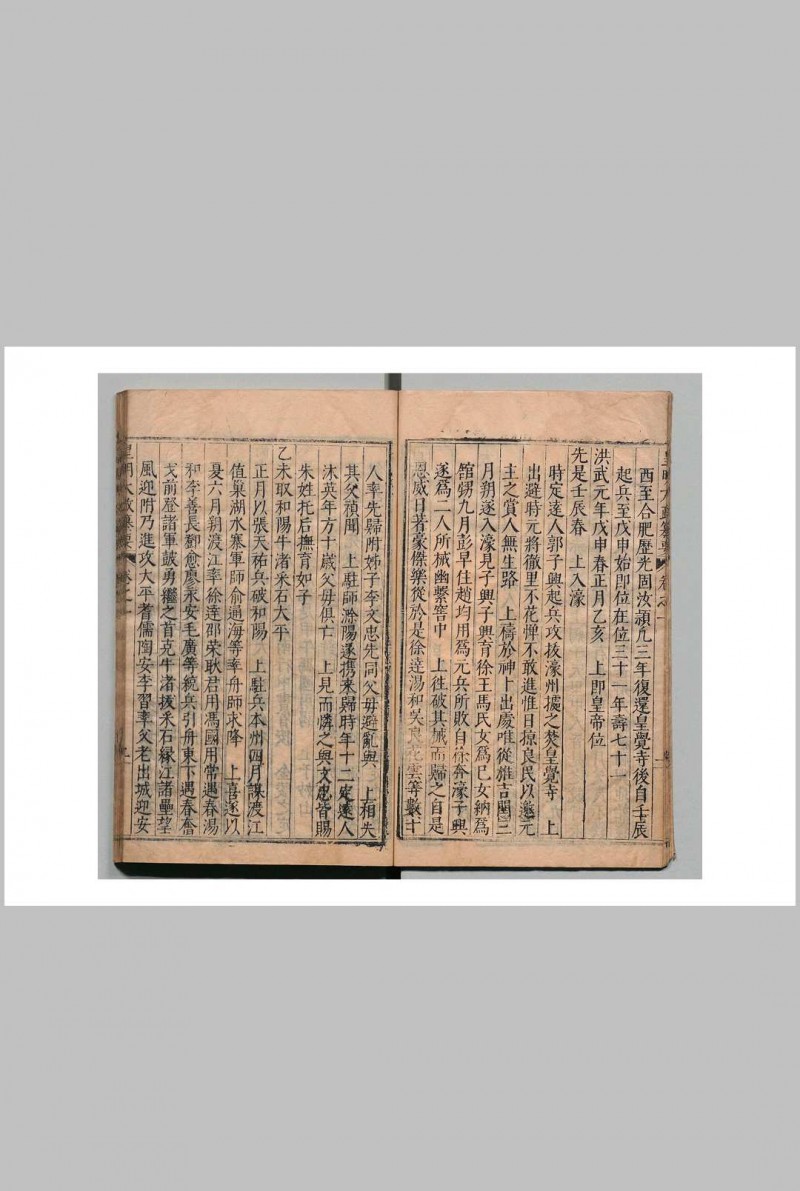 西至合肥歷光固汝頴凡三年復還皇覺寺後自壬辰
起兵至戊申始即位在位三十一年壽七十一
洪武元年戊申春正月乙亥　上即皇帝位
先是壬辰春　上入濠
時定遠人郭子興起兵攻拔濠州據之焚皇覺寺　上
出避時元將徹里不花憚不敢進惟日掠良民以邀元
主之賞人無生路　上禱於神卜出處唯從雅吉閏三
月朔遂入濠見子興子興育徐王馬氏女爲已女納爲
館甥九月彭早住趙均用爲元兵所敗自徐奔濠子興
遂爲二人所械幽繫窖中　上徃破其械而歸之自是
恩威日著豪傑樂從於是徐達湯和吳良花雲等數十
人率先歸附姊子李文忠先同父母避亂與　上相失
其父禎聞　上駐師滁陽遂携来歸時年十二定遠人
沐英年方十歲父母俱亡　上見而憐之與文忠皆賜
朱姓托后撫育如子
乙未取和陽牛渚采石太平
正月以張天祐兵破和陽　上駐兵本州四月謀渡江
值巢湖水寨軍師俞通海等率舟師求降　上喜遂以
夏六月朔渡江率徐達邵榮耿君用馮國用常遇春湯
和李善長鄧愈廖永安毛廣等統兵引舟東下遇春奮
戈前登諸軍鼓勇繼之首克牛渚拔采石緣江諸壘望
風迎附乃進攻大平耆儒陶安李習率父老出城迎安
皇明大政纂要
卷之一